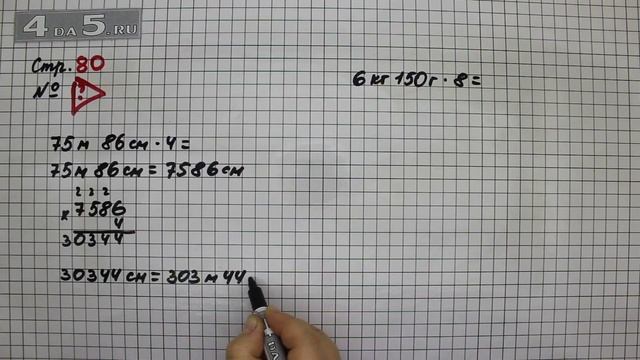 4 DA 5.RU
Стр. 80
№ ?
75 м 86 см · 4 =
75 м 86 см = 7586 см
2 3 2
× 7586
4
30344
30344 см = 303 м 44
6 кг 150 г · 8 =